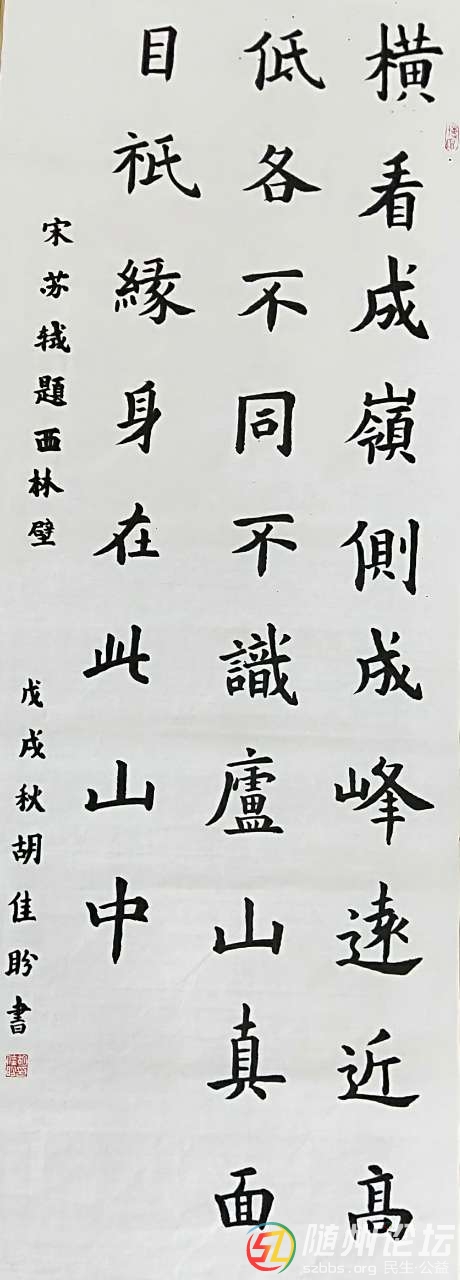 横看成嶺側成峰遠近髙
低各不同不識廬山真面
目祇緣身在此山中
宋苏轼題西林壁
戊戌秋胡佳盼書
随州论坛
szbbs.org 民生·公益